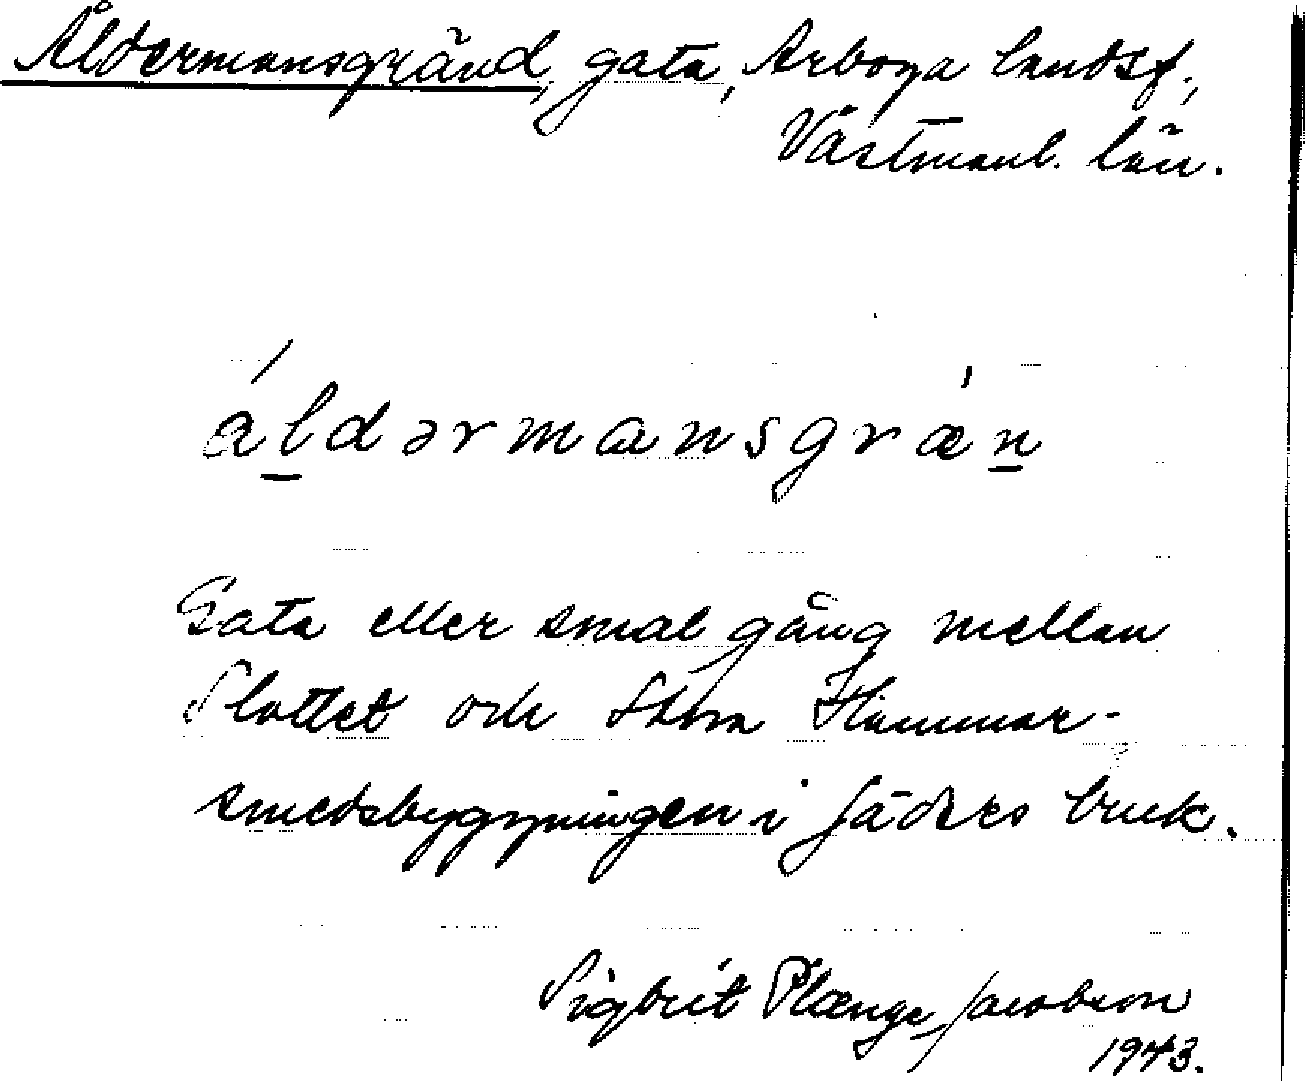 Åldermansgränd, gata, Arboga landsf.,
Västmanl. län.
áldərmansgræn
Gata eller smal gång mellan
Slottet och Stora Hammar-
smedsbyggningen i Jäders bruk.
Sigbrit Plænge Jacobson
1943.